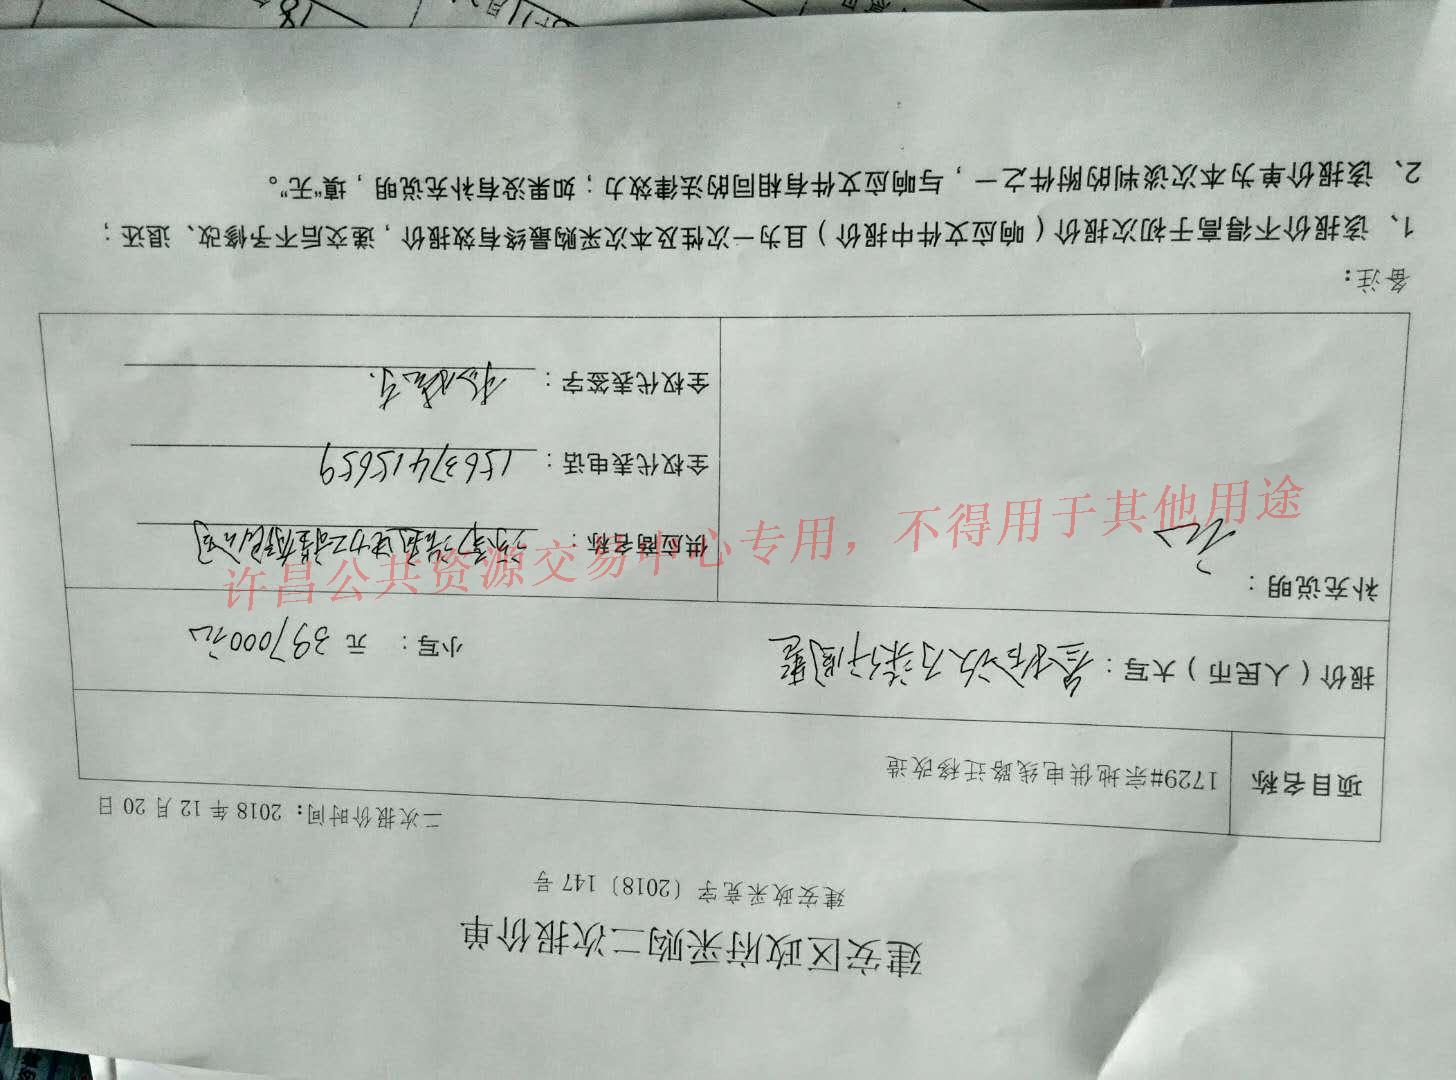 建安区政府采购二次报价单
建安政采竞字（2018）147 号
二次报价时间：2018 年 12 月 20 日
项目名称 1729#宗地供电线路迁移改造
报价（人民币）大写：叁拾玖万柒仟圆整 小写： 元 397000元
补充说明：
无
供应商名称：
全权代表电话：15637415659
全权代表签字：
备注：
1、该报价不得高于初次报价（响应文件中报价）且为一次性及本次采购最终有效报价，递交后不予修改、退还；
2、该报价单为本次谈判的附件之一，与响应文件有相同的法律效力；如果没有补充说明，填“无”。
许昌公共资源交易中心专用，不得用于其他用途